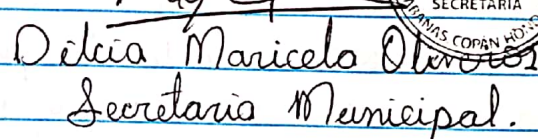 SECRETARIA
BANAS COPÁN HO
Dilcia Maricela Oliveros
Secretaria Municipal.